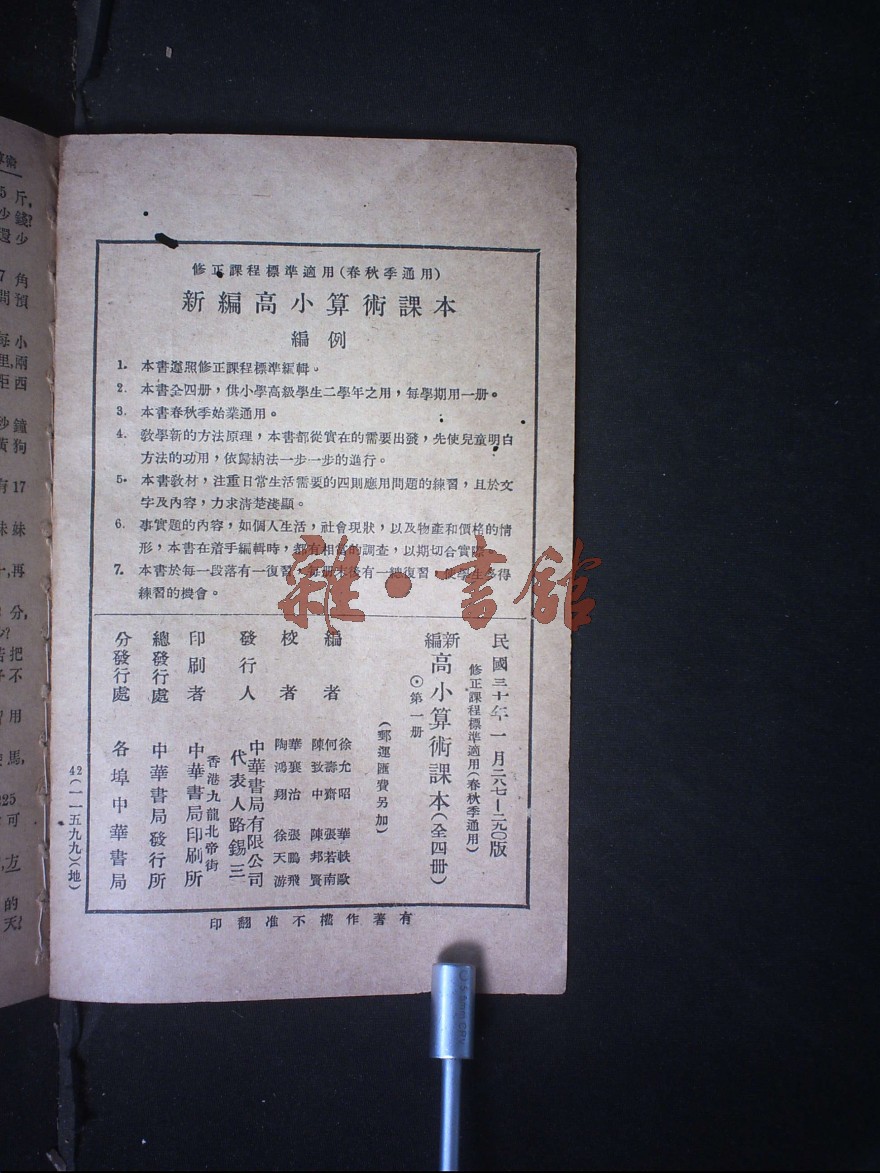 修正課程標準適用(春秋季通用)
新編高小算術課本
編例
1. 本書遵照修正課程標準編輯。
2. 本書全四册，供小學高級學生二學年之用，每學期用一册。
3. 本書春秋季始業通用。
4. 敎學新的方法原理，本書都從實在的需要出發，先使兒童明白
方法的功用，依歸納法一步一步的進行。
5. 本書敎材，注重日常生活需要的四則應用問題的練習，且於文
字及內容，力求淸楚淺顯。
6. 事實題的內容，如個人生活，社會現狀，以及物產和價格的情
形，本書在着手編輯時，都有相當的調查，以期切合實際。
7. 本書於每一段落有一復習，每册末後有一總復習，使學生多得
練習的機會。
民國三十年一月二八七—二九〇版
修正課程標準適用(春秋季通用)
新編高小算術課本(全四册)
⊙第一册
(郵運匯費另加)
編者 徐允昭 華軼歐
何壽齋 張若南
陳致中 陳邦賢
校者 華襄治 張鵬飛
陶鴻翔 徐天游
發行人 中華書局有限公司
代表人路錫三
印刷者 香港九龍北帝街
中華書局印刷所
總發行處 中華書局發行所
分發行處 各埠中華書局
42(一一五九九)(地)
有著作權不准翻印
雜·書館